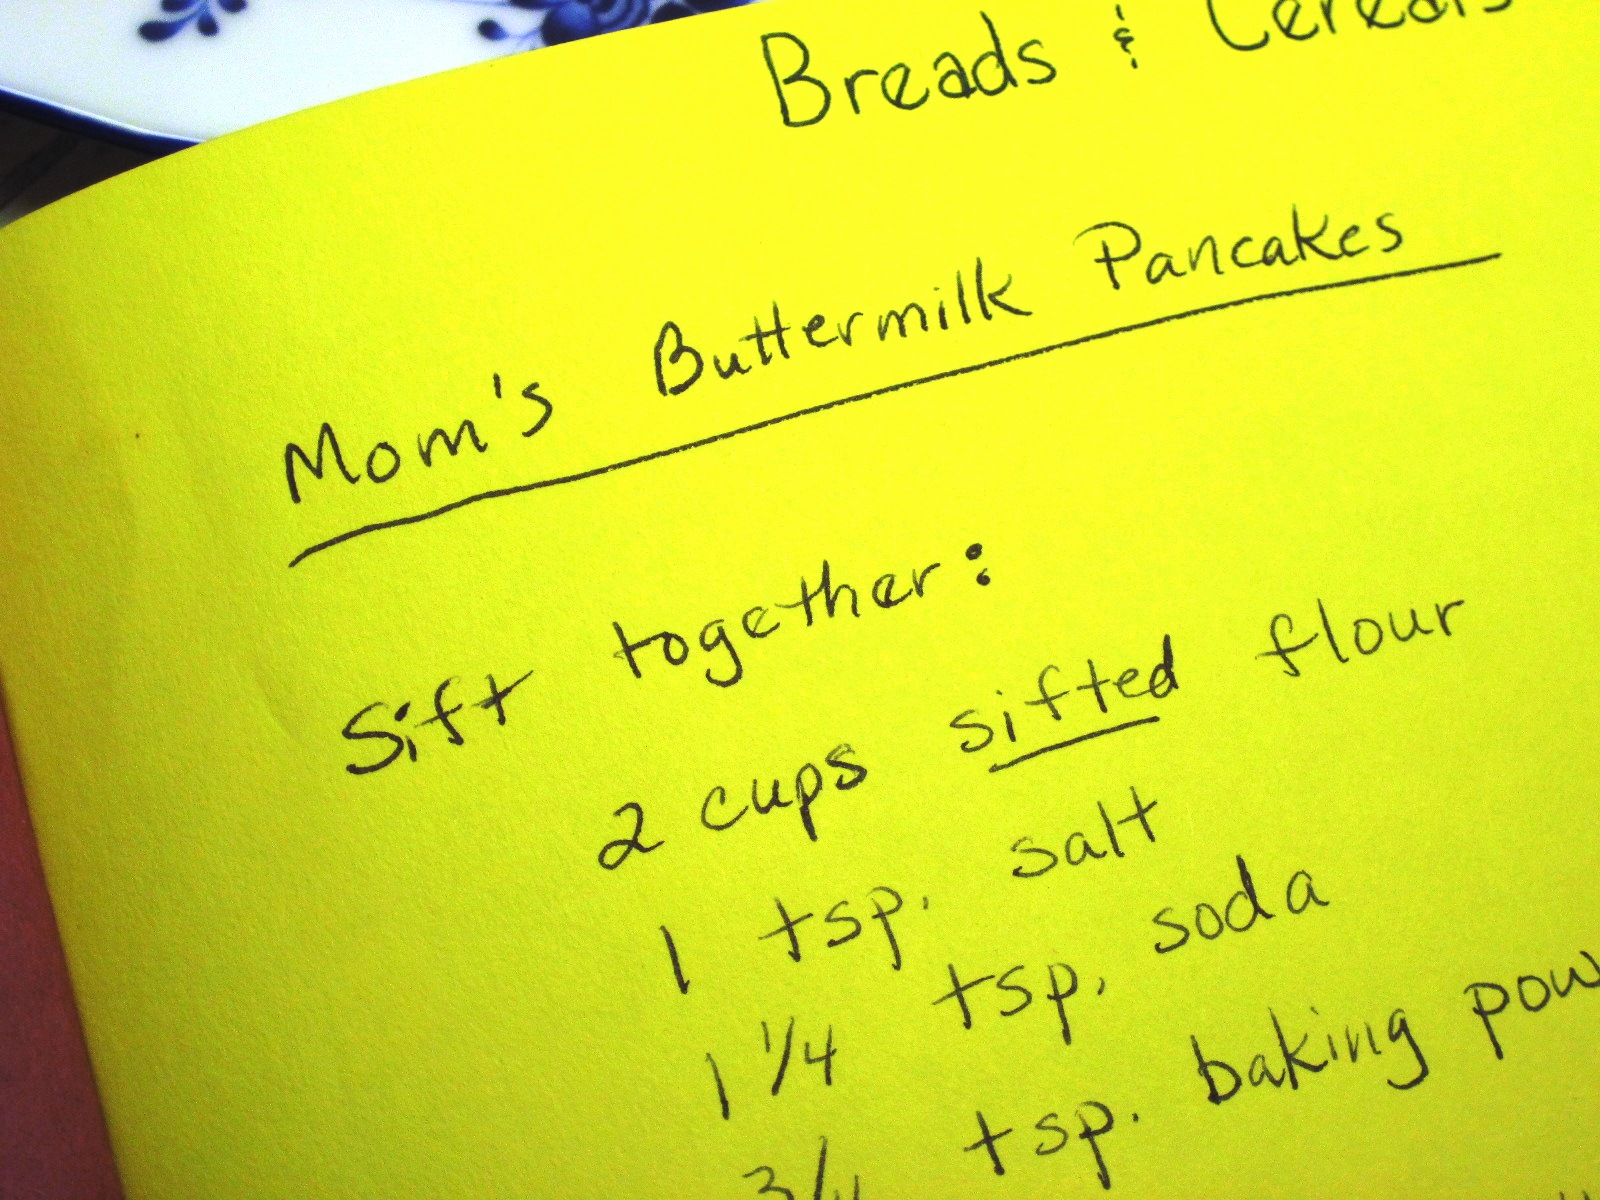 Breads & Cereals
Mom's Buttermilk Pancakes
Sift together:
2 cups sifted flour
1 tsp. salt
1 1/4 tsp. soda
3/4 tsp. baking pow